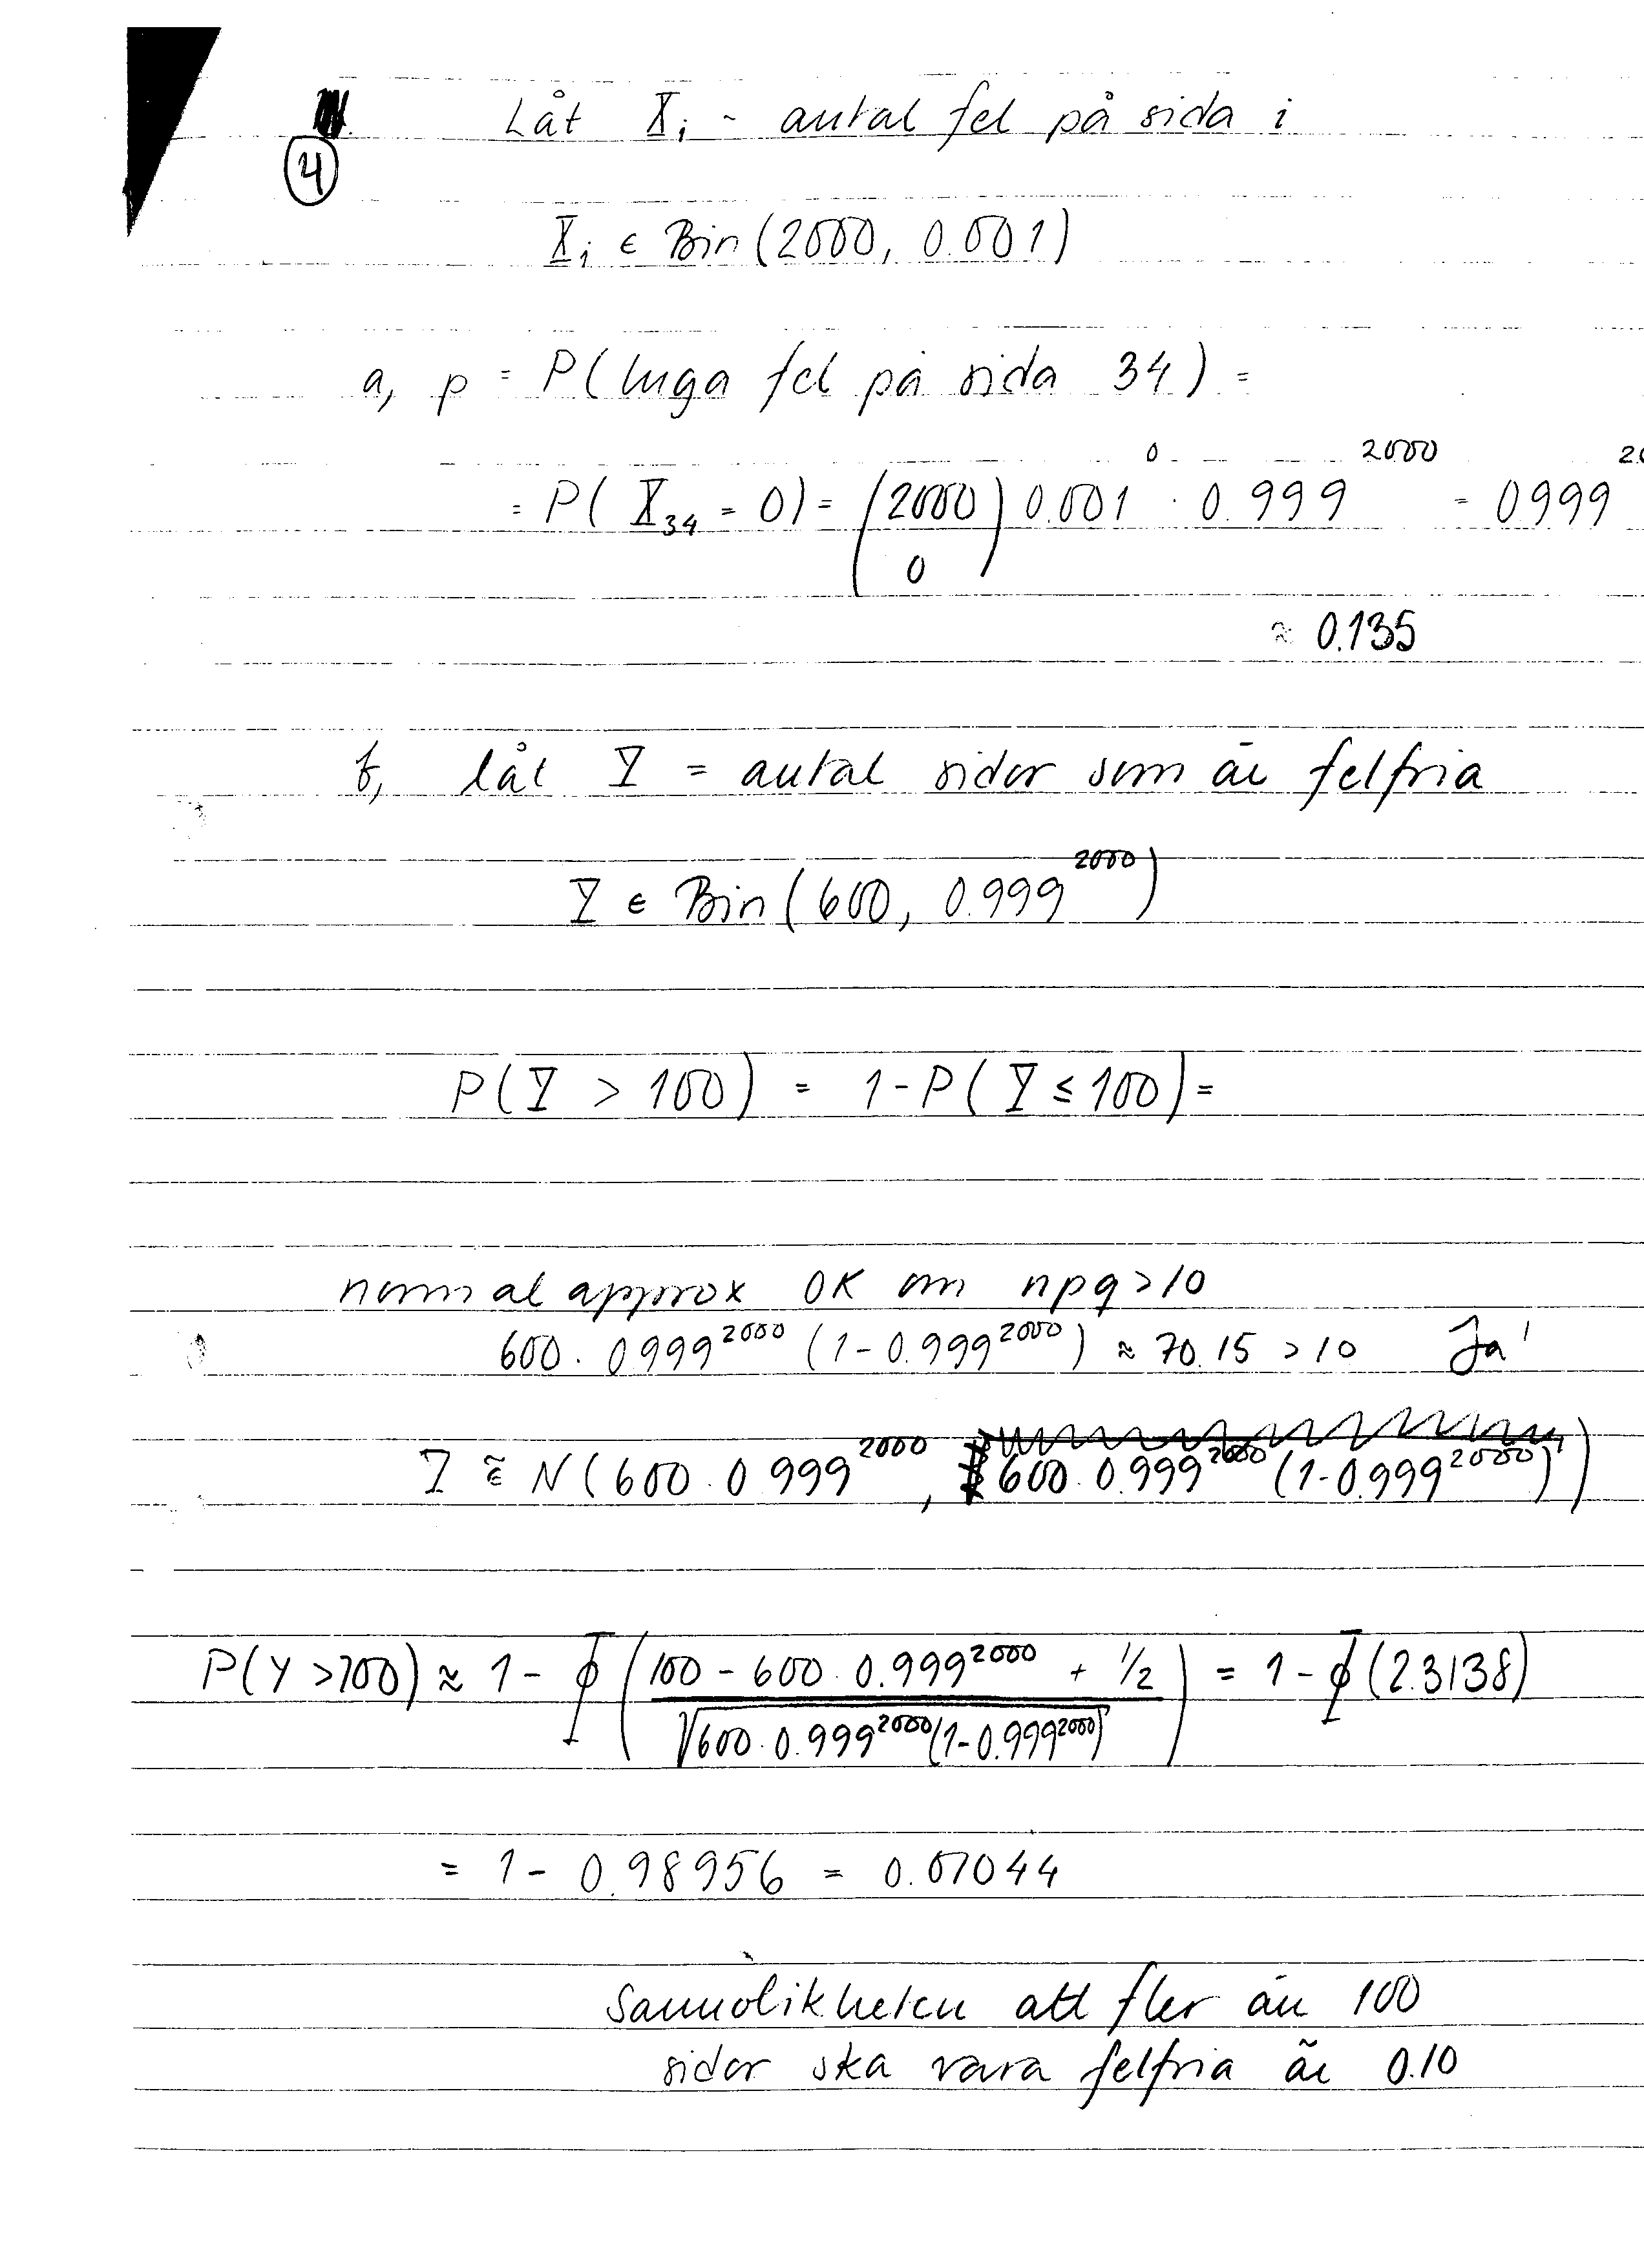 ④ Låt X_i = antal fel på sida i
X_i ∈ Bin(2000, 0.001)
a, p = P(Inga fel på sida 34) =
= P(X_34 = 0) = (2000 0) 0.001^0 · 0.999^2000 = 0999^20
≈ 0.135
b, låt Y = antal sidor som är felfria
Y ∈ Bin(600, 0.999^2000)
P(Y > 100) = 1 - P(Y ≤ 100) =
normal approx OK om npq > 10
600 · 0.999^2000 (1 - 0.999^2000) ≈ 70.15 > 10 Ja!
Y ∈~ N(600 · 0.999^2000, 600 · 0.999^2000 (1 - 0.999^2000))
P(Y > 100) ≈ 1 - Φ((100 - 600 · 0.999^2000 + 1/2) / √(600 · 0.999^2000 (1 - 0.999^2000))) = 1 - Φ(2.3138)
= 1 - 0.98956 = 0.01044
Sannolikheten att fler än 100
sidor ska vara felfria är 0.10